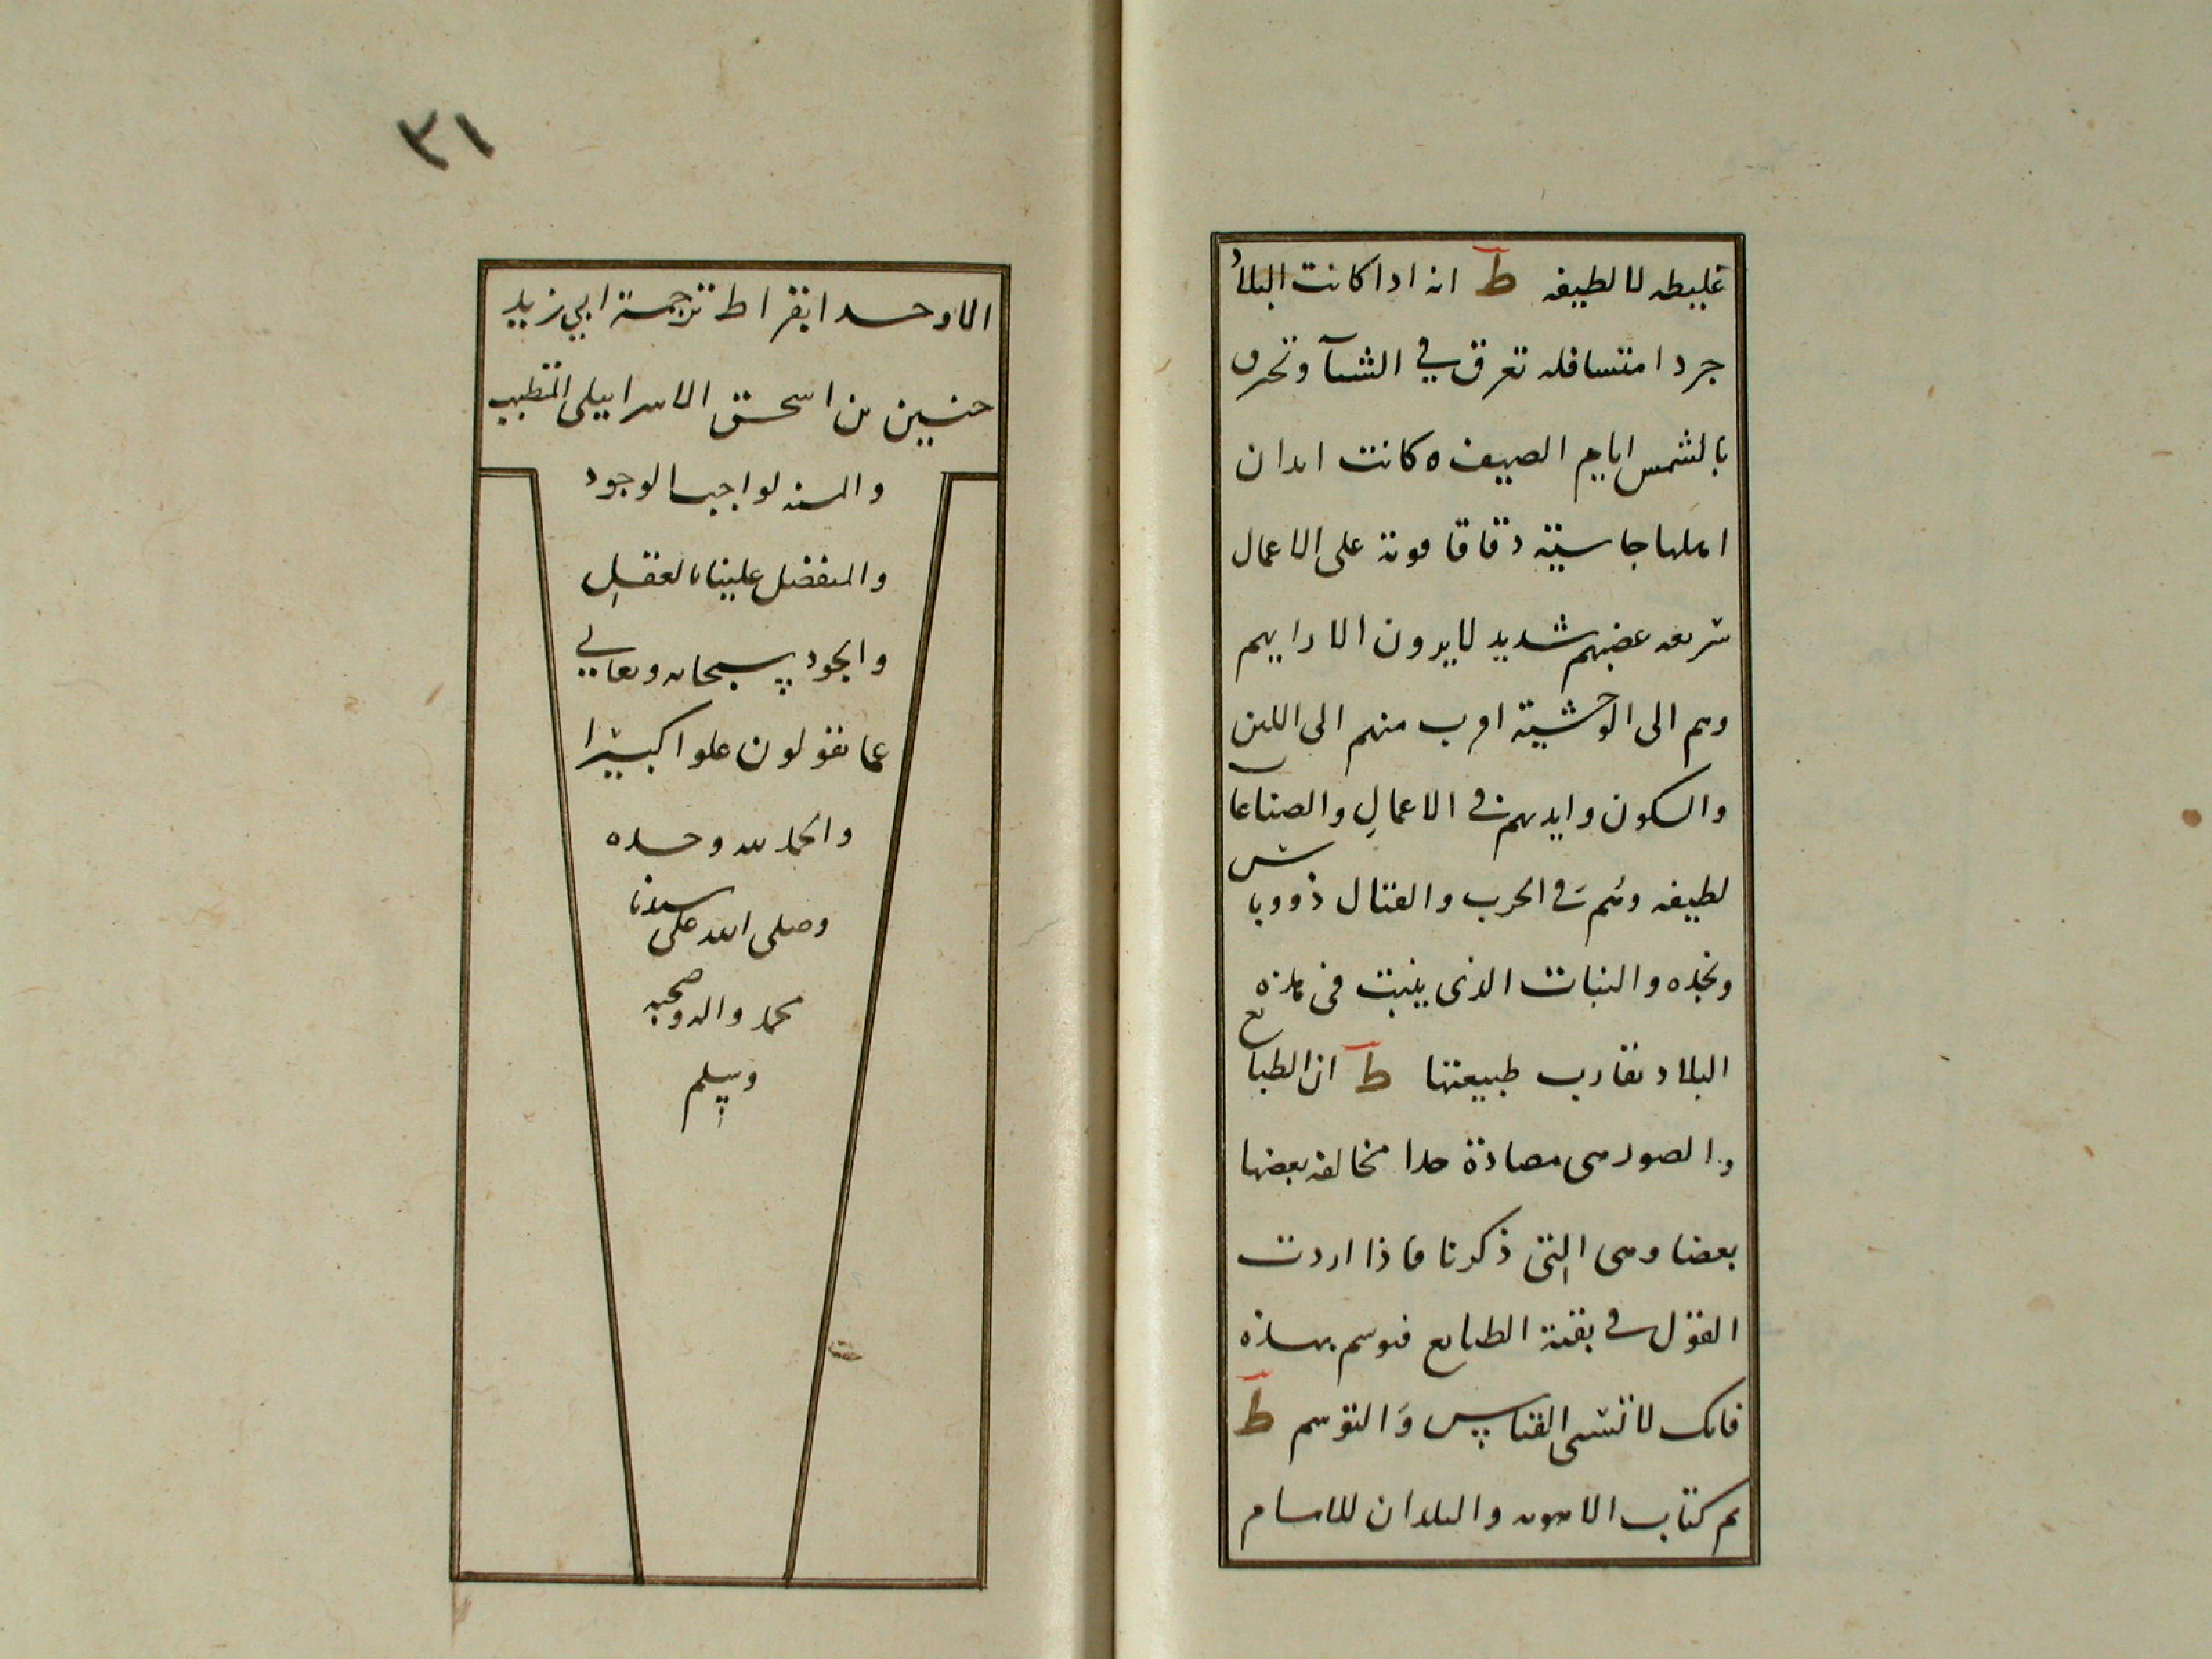 غليطه لا لطيفه ط انه اذا كانت البلاد
جردا متسافله تغرق في الشتآ وتحرق
بالشمس ايام الصيف ه كانت ابدان
اهلها جاسيّة دقاقا قوية على الاعمال
سريعه غضبهم شديد لا يرون الا رايهم
وهم الى الوحشية اقرب منهم الى اللين
والسكون وايديهم في الاعمال والصناعات
لطيفه وهم في الحرب والقتال ذووباس
ونجده والنبات الذي ينبت في هذه
البلاد تقارب طبيعتها ط ان الطبايع
والصور هي مصادة جدا مخالفه بعضها
بعضا وهي التي ذكرنا فاذا اردت
القول في بقية الطبايع فتوسم بهذه
فانك لا تنسى القياس والتوسم ط
تم كتاب الاهويه والبلدان للامام
٣١
الاوحد ابقراط ترجمة ابي زيد
حنين بن اسحق الاسراييلي المتطبب
والمنه لواجب الوجود
والمتفضل علينا بالعقل
والجود سبحانه وتعالي
عما يقولون علوا كبيرا
والحمد لله وحده
وصلى الله على سيدنا
محمد واله وصحبه
وسلم